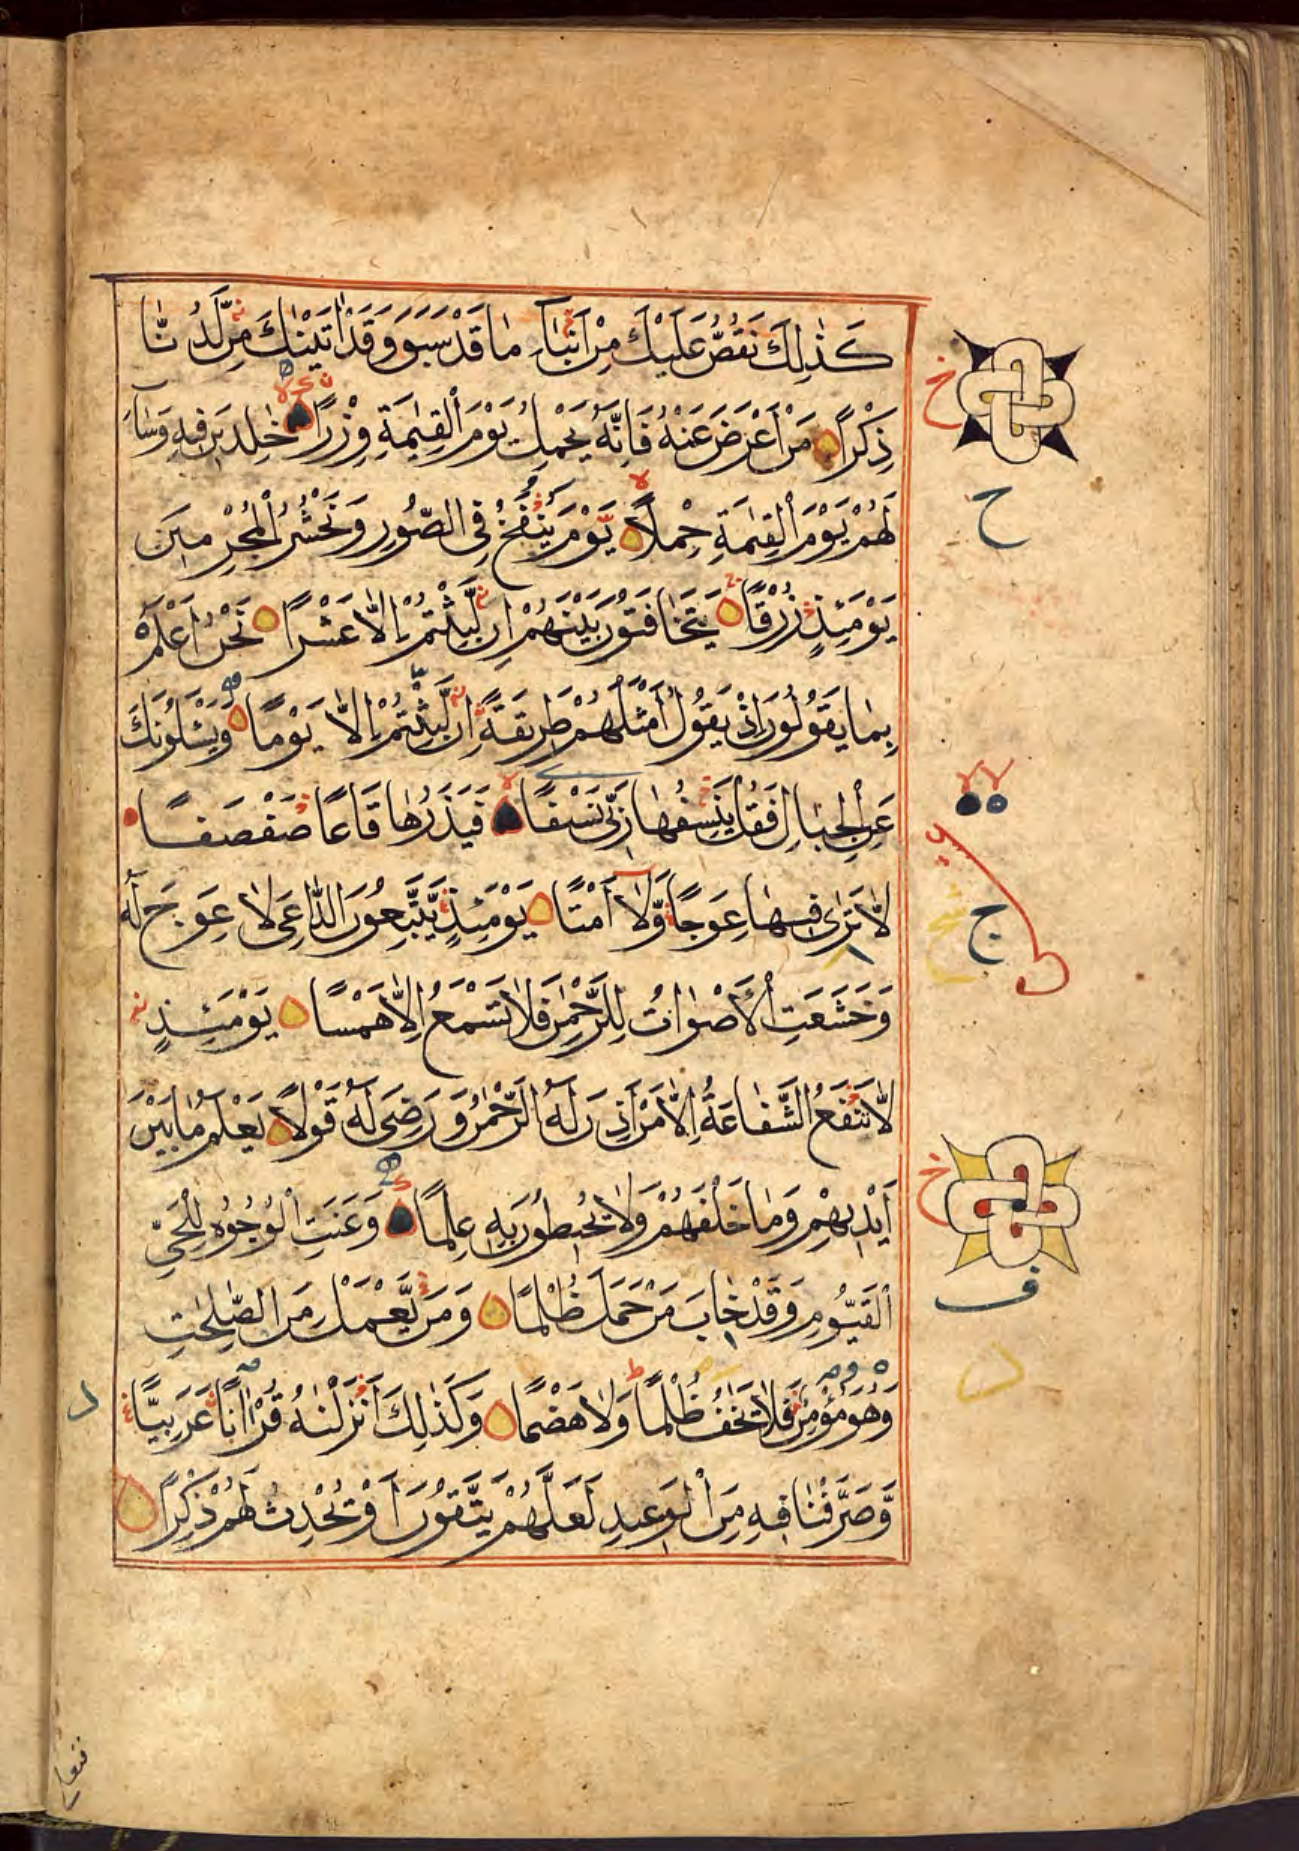 كَذٰلِكَ نَقُصُّ عَلَيْكَ مِنْ اَنْبَآءِ مَا قَدْ سَبَقَ وَقَدْ اٰتَيْنٰكَ مِنْ لَّدُنَّا
ذِكْرًا مَنْ اَعْرَضَ عَنْهُ فَاِنَّهُ يَحْمِلُ يَوْمَ الْقِيٰمَةِ وِزْرًا خٰلِدِيْنَ فِيْهِ وَسَآءَ
لَهُمْ يَوْمَ الْقِيٰمَةِ حِمْلًا يَّوْمَ يُنْفَخُ فِي الصُّوْرِ وَنَحْشُرُ الْمُجْرِمِيْنَ
يَوْمَئِذٍ زُرْقًا يَّتَخَافَتُوْنَ بَيْنَهُمْ اِنْ لَّبِثْتُمْ اِلَّا عَشْرًا نَحْنُ اَعْلَمُ
بِمَا يَقُوْلُوْنَ اِذْ يَقُوْلُ اَمْثَلُهُمْ طَرِيْقَةً اِنْ لَّبِثْتُمْ اِلَّا يَوْمًا وَيَسْئَلُوْنَكَ
عَنِ الْجِبَالِ فَقُلْ يَنْسِفُهَا رَبِّيْ نَسْفًا فَيَذَرُهَا قَاعًا صَفْصَفًا
لَّا تَرٰى فِيْهَا عِوَجًا وَّلَا اَمْتًا يَوْمَئِذٍ يَّتَّبِعُوْنَ الدَّاعِيَ لَا عِوَجَ لَهُ
وَخَشَعَتِ الْاَصْوَاتُ لِلرَّحْمٰنِ فَلَا تَسْمَعُ اِلَّا هَمْسًا يَوْمَئِذٍ
لَّا تَنْفَعُ الشَّفَاعَةُ اِلَّا مَنْ اَذِنَ لَهُ الرَّحْمٰنُ وَرَضِيَ لَهُ قَوْلًا يَعْلَمُ مَا بَيْنَ
اَيْدِيْهِمْ وَمَا خَلْفَهُمْ وَلَا يُحِيْطُوْنَ بِهِ عِلْمًا وَعَنَتِ الْوُجُوْهُ لِلْحَيِّ
الْقَيُّوْمِ وَقَدْ خَابَ مَنْ حَمَلَ ظُلْمًا وَمَنْ يَّعْمَلْ مِنَ الصّٰلِحٰتِ
وَهُوَ مُؤْمِنٌ فَلَا يَخٰفُ ظُلْمًا وَلَا هَضْمًا وَكَذٰلِكَ اَنْزَلْنٰهُ قُرْاٰنًا عَرَبِيًّا
وَّصَرَّفْنَا فِيْهِ مِنَ الْوَعِيْدِ لَعَلَّهُمْ يَتَّقُوْنَ اَوْ يُحْدِثُ لَهُمْ ذِكْرًا
خ
ح
ج
خ
ف